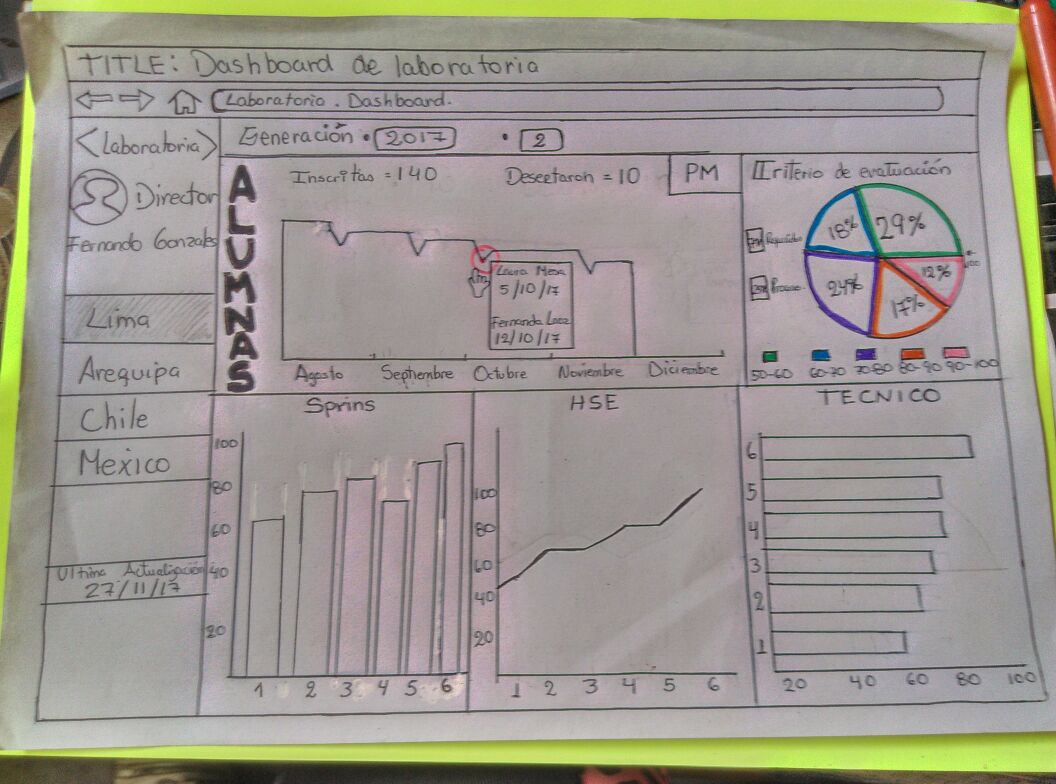 TITLE: Dashboard de laboratoria
Laboratorio. Dashboard.
<Laboratoria>
Director
Fernando Gonzales
Lima
Arequipa
Chile
Mexico
Ultima Actualización
27/11/17
Generación • 2017 • 2
ALUMNAS
Inscritas = 140
Desertaron = 10
PM
Laura Mesa
5/10/17
Fernanda
12/10/17
Agosto Septiembre Octubre Noviembre Diciembre
Criterio de evaluación
18% 29%
12%
24%
17%
100
50-60 60-70 70-80 80-90 90-100
Sprins
100
80
60
40
20
1 2 3 4 5 6
HSE
100
80
60
40
20
1 2 3 4 5 6
TECNICO
6
5
4
3
2
1
20 40 60 80 100